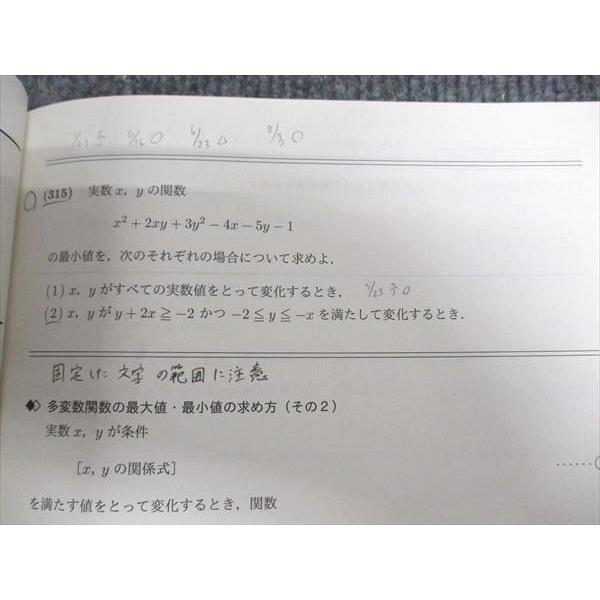 1/23 〒 6/12 ○ 1/23 △ 8/3 ○
(315) 実数 x, y の関数
x² + 2xy + 3y² − 4x − 5y − 1
の最小値を，次のそれぞれの場合について求めよ．
(1) x, y がすべての実数値をとって変化するとき． 1/23 〒 ○
(2) x, y が y + 2x ≧ −2 かつ −2 ≦ y ≦ −x を満たして変化するとき．
固定した文字の範囲に注意
多変数関数の最大値・最小値の求め方（その２）
実数 x, y が条件
[x, y の関係式] ……
を満たす値をとって変化するとき，関数